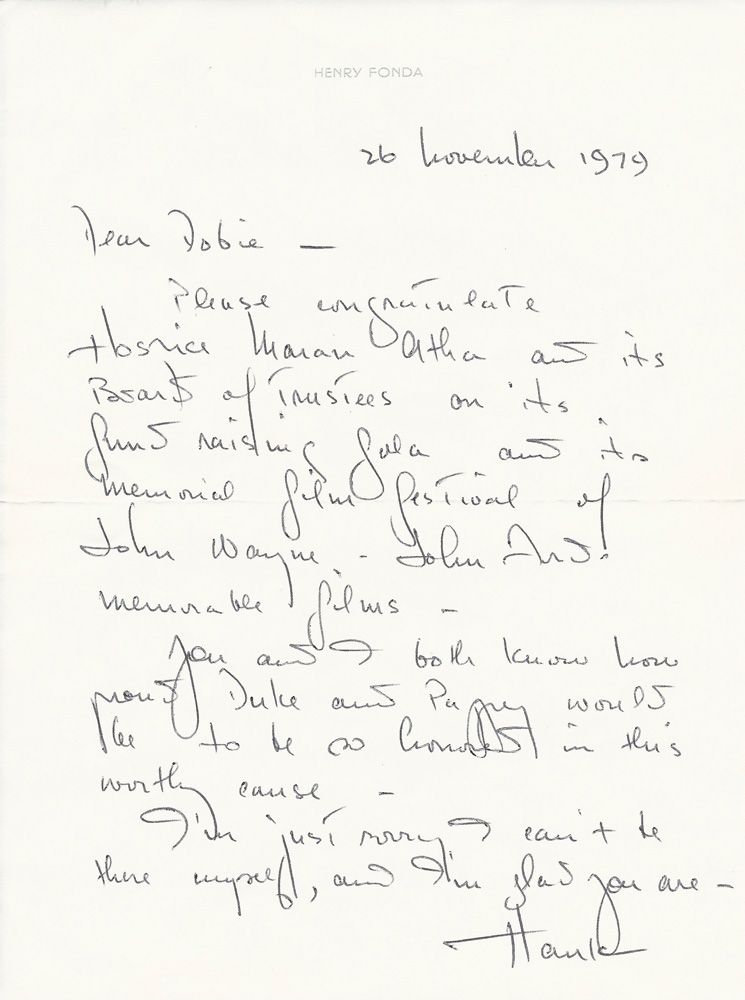 HENRY FONDA
26 November 1979
Dear Dobie —
Please congratulate
Hospice Maran Atha and its
Board of Trustees on its
fund raising Gala and its
memorial film festival of
John Wayne - John Ford
memorable films -
You and I both know how
proud Duke and Pappy would
be to be so honored in this
worthy cause -
I'm just sorry I can't be
there myself, and I'm glad you are -
Hank